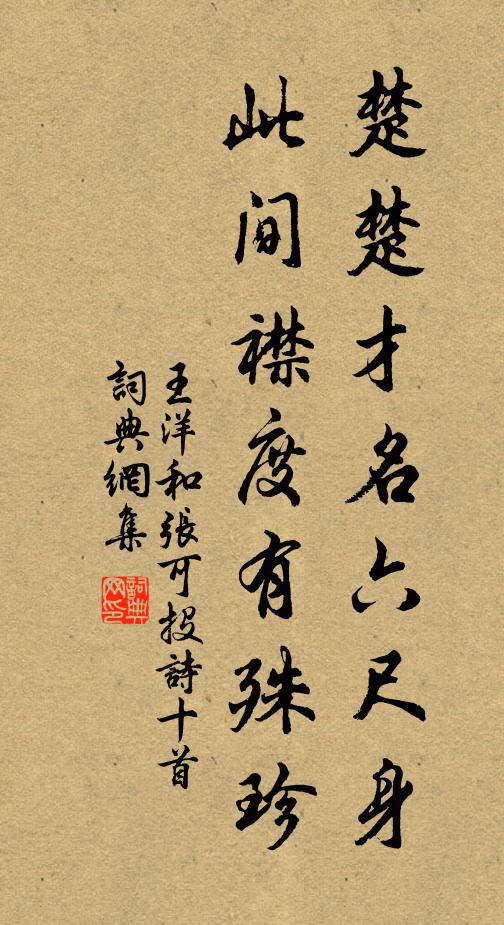 楚楚才名六尺身
此间襟度有殊珍
王洋和張可投詩十首
詞典網集
詞典網印